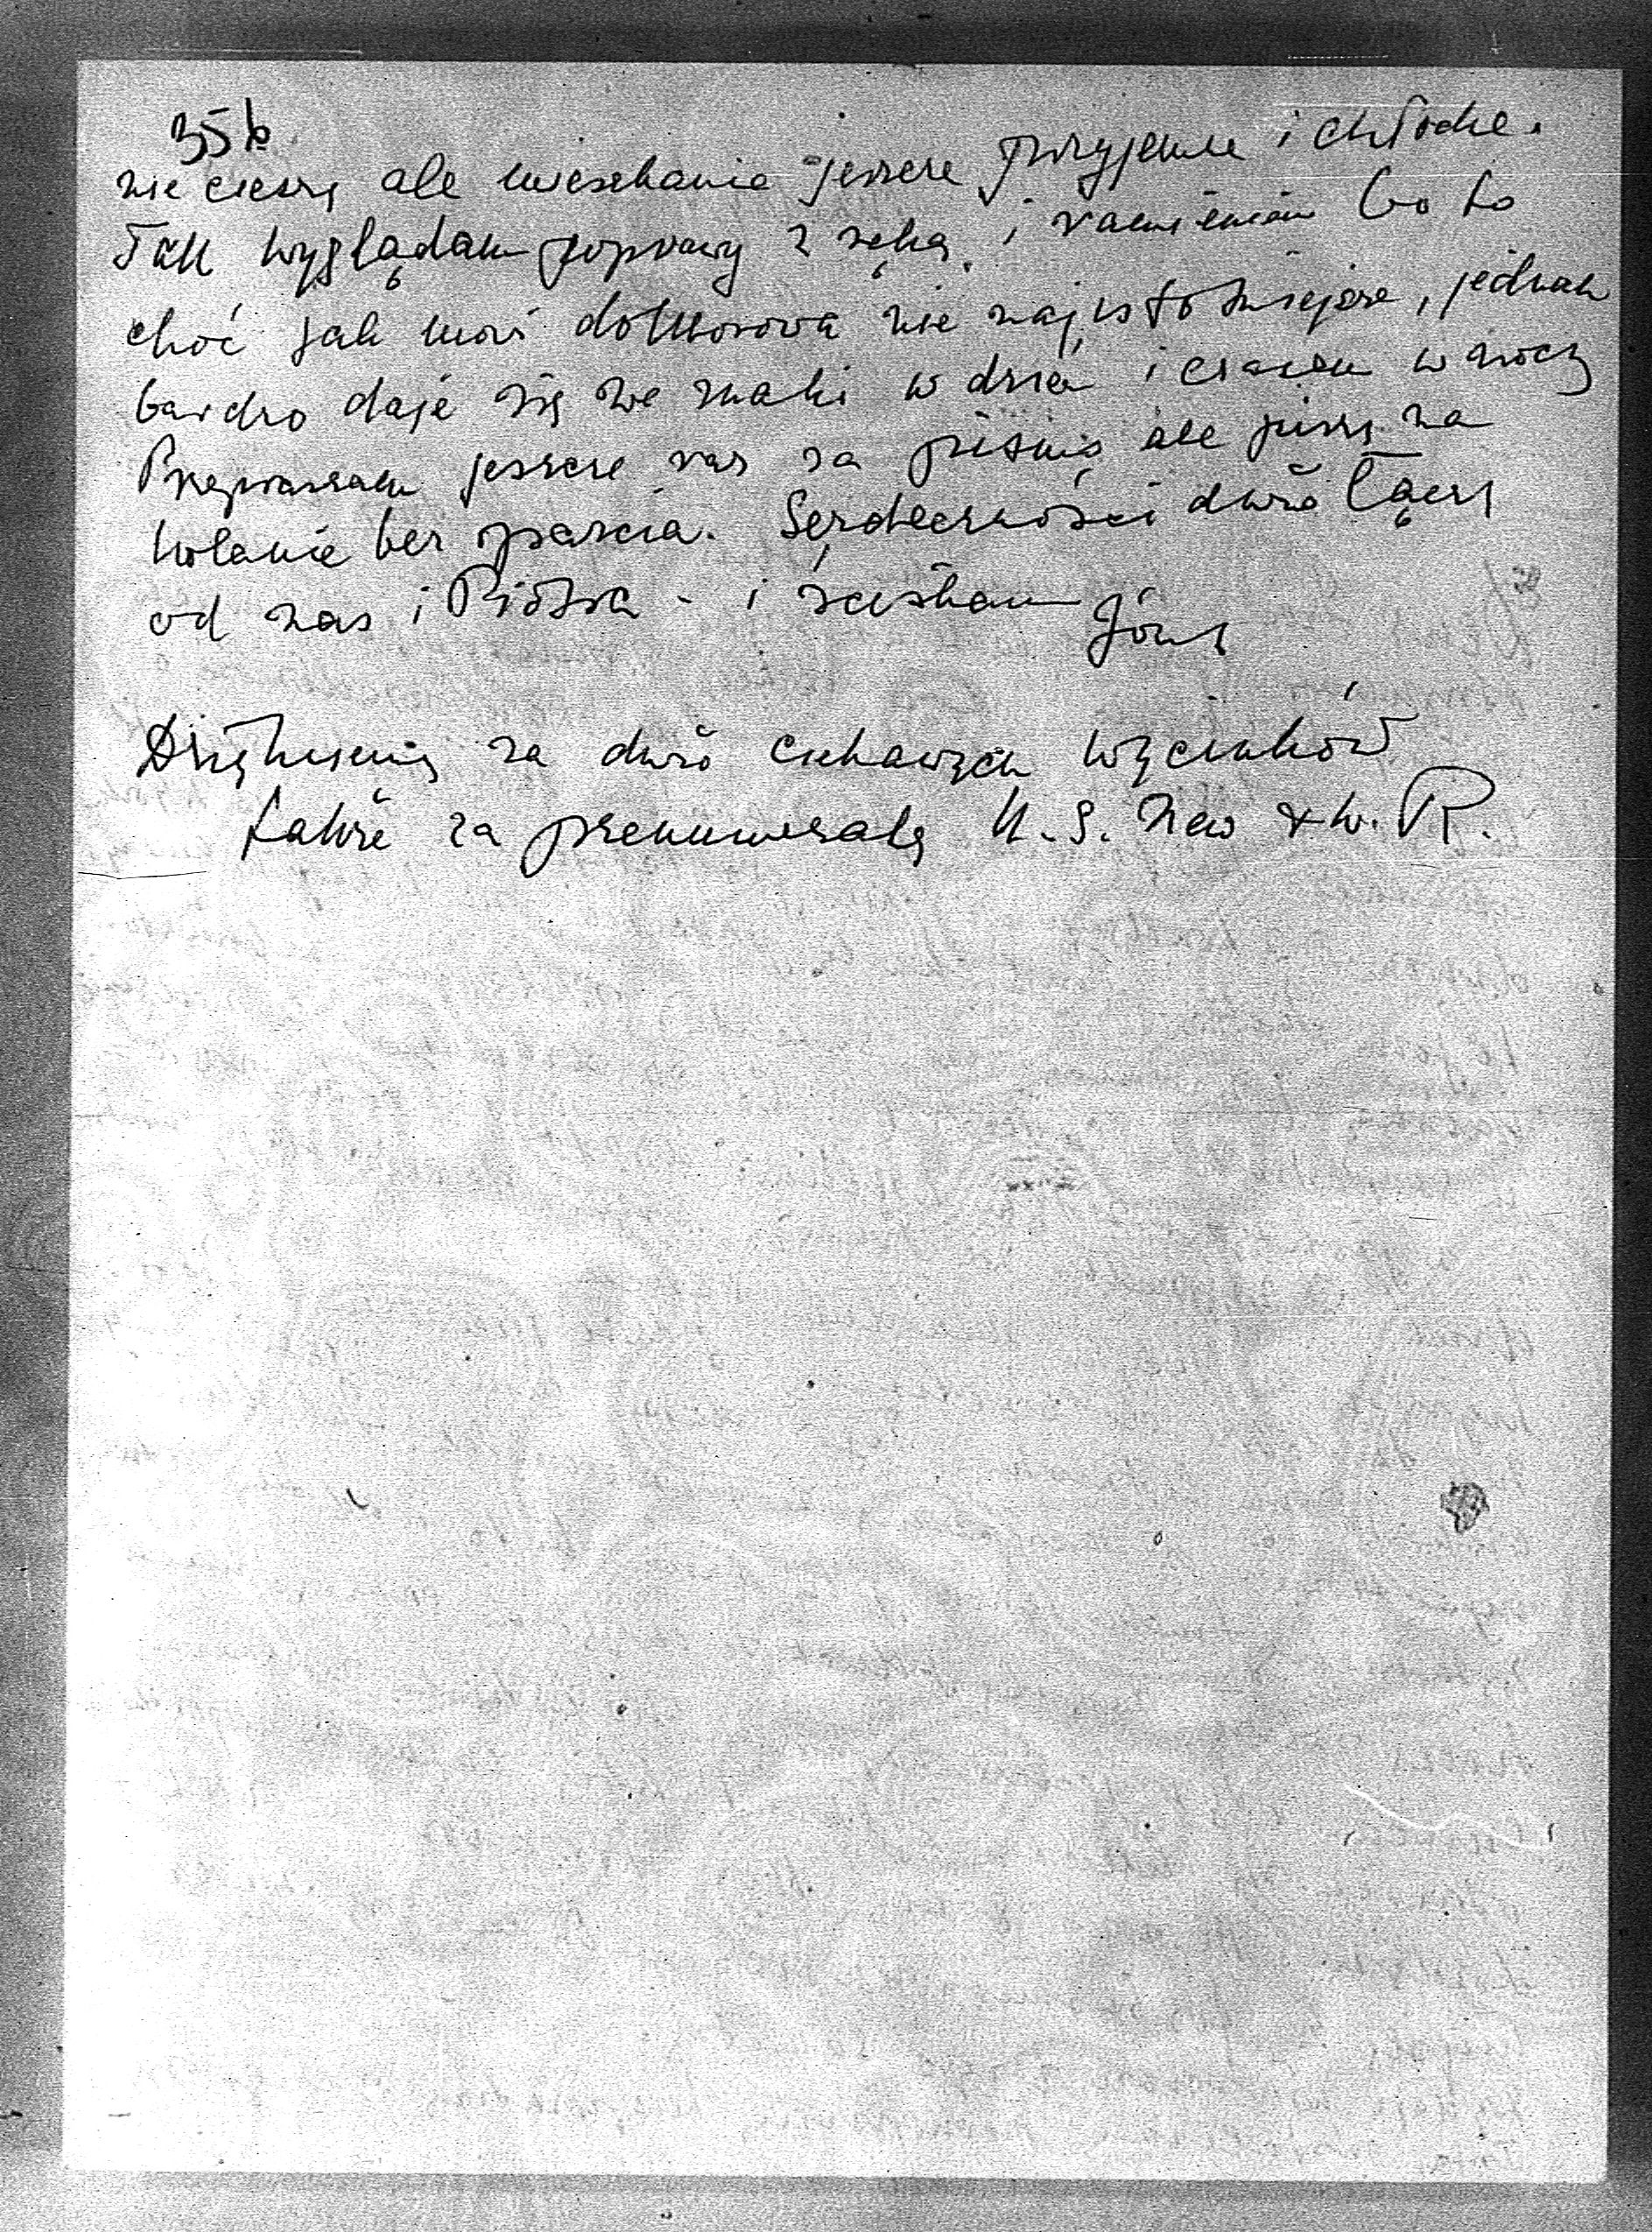 35b
nie cieszy ale mieszkanie jeszcze przyjemne i chłodne.
Tak wyglądam poprawy z ręką i ramieniem bo to
choć jak mówi doktorowa nie najistotniejsze, jednak
bardzo daje się we znaki w dzień i czasem w nocy
Przepraszam jeszcze raz za pismo ale piszę na
kolanie bez oparcia. Serdeczności dużo łączę
od nas i Piotra - i ściskam
Józus
Dziękujemy za dużo ciekawych wycinków
także za prenumeratę U.S. New & W. R.